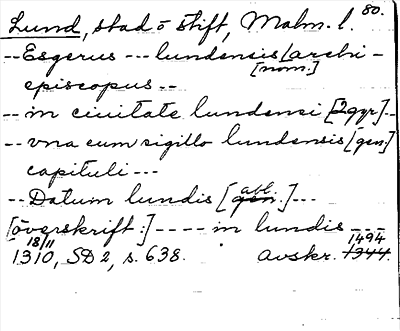 80.
Lund, stad o stift, Malm. l.
-- Esgerus --- lundensis [archi-
[nom.]
episcopus --
-- in ciuitate lundensi [2 ggr] --
-- vna cum sigillo lundensis [gen.]
capituli ---
-- Datum lundis [gen. abl.] ---
[överskrift:] ---- in lundis ---
1310, 18/11, SD 2, s. 638. avskr. 1344. 1494